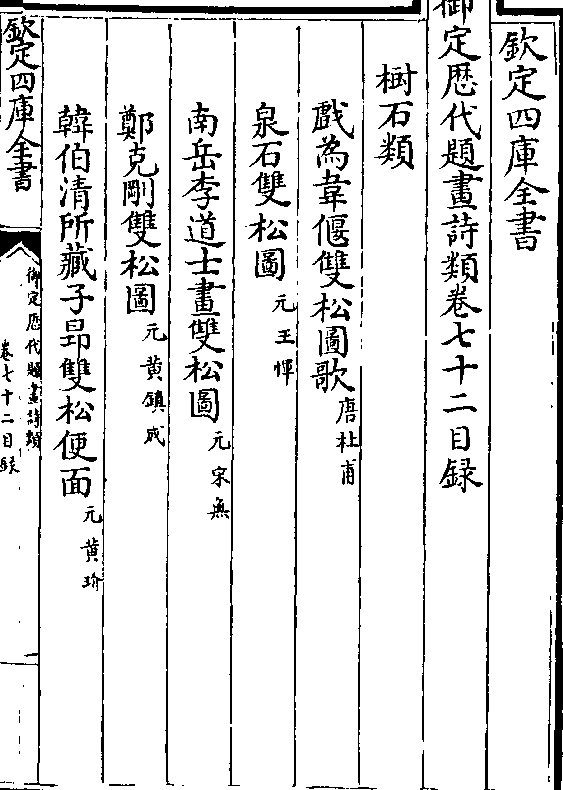 欽定四庫全書
御定歴代題畫詩類卷七十二目録
樹石類
戲為韋偃雙松圖歌唐杜甫
泉石雙松圖元王惲
南岳李道士畫雙松圖元宋無
鄭克剛雙松圖元黄鎮成
韓伯清所藏子昻雙松便面元黄玠
欽定四庫全書
御定歴代題畫詩類
卷七十二目録